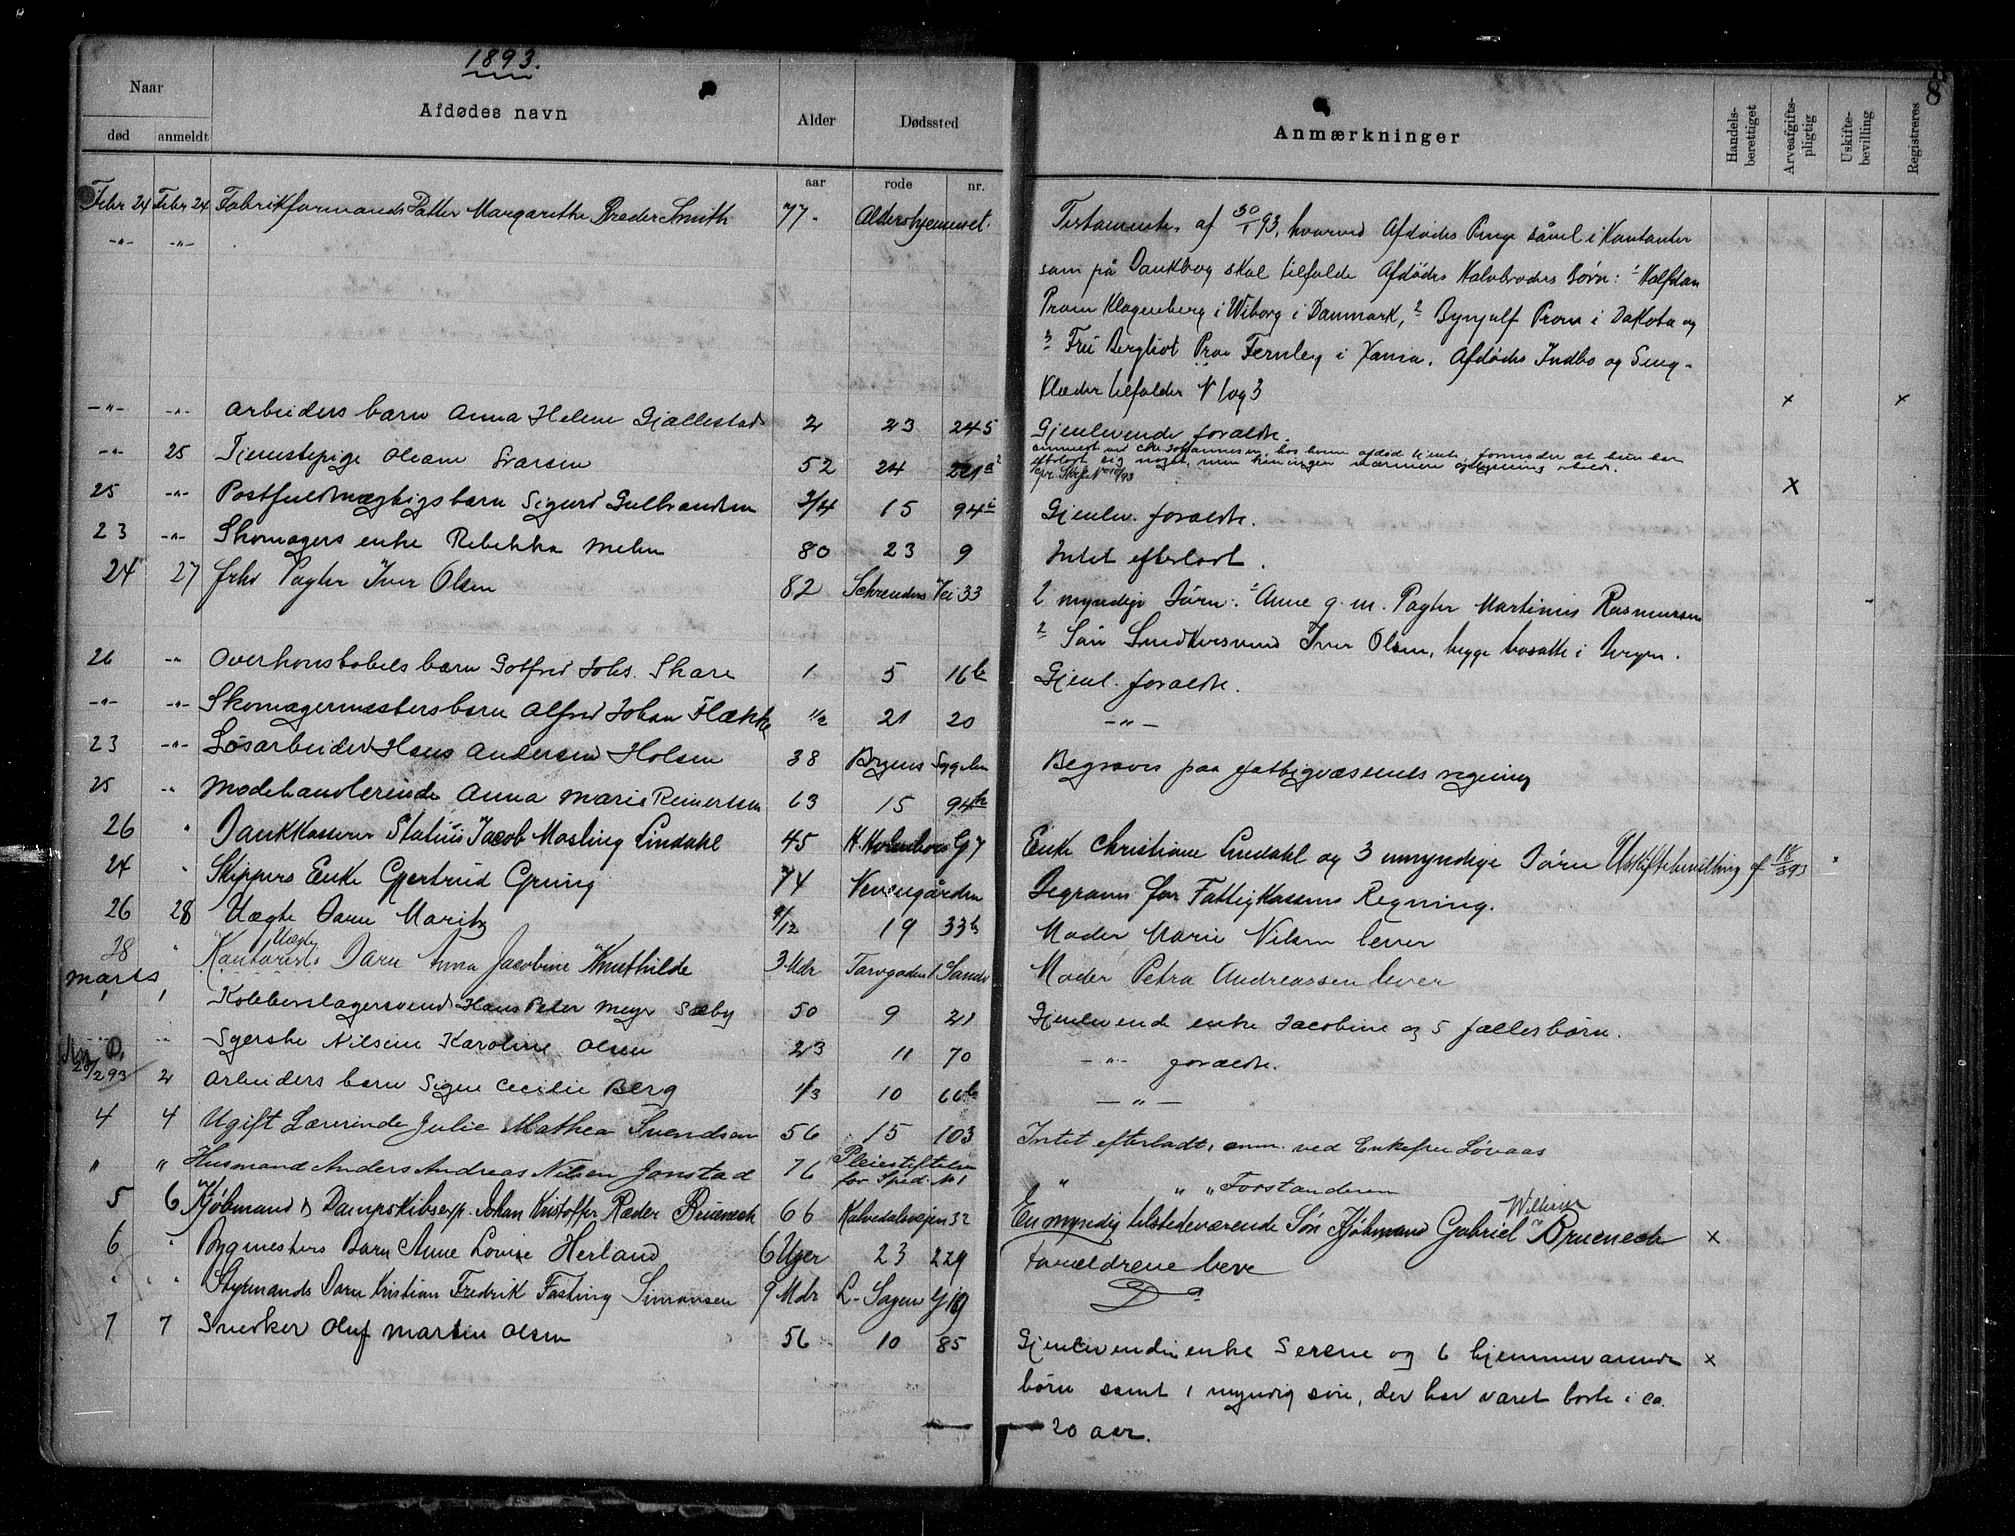 1893.
8
Naar
Afdødes navn
Alder
Dødssted
Anmærkninger
Handels-berettiget
Arveafgifts-pligtig
Uskifte-bevilling
Registreres
død anmeldt
aar rode nr.
Febr 24 Febr 24 Fabrikformands Datter Margarethe Smith 77 - Aldershjemmet.
Testamente af 30/1 93, hvorved Afdødes Penge såvel i Kontanter
-"- -"-
som på Bankbog skal tilfalde Afdødes Halvbroders Børn: 1 Halfdan
Prom Klagenberg i Wiborg i Danmark, 2 Bynjulf Prom i Dakota og
3 Fru Bergliot Fernley i Xania. Afdødes Indbo og Seng-
Klæder tilfalder N 1 og 3 x x
-"- -"- Arbeiders barn Anna Helene Gjællestad 2 23 245 Gjenlevende forældre.
-"- 25 Tjenestepige Oleane 52 24 221a2
x
25 -"- Postfuldmægtigs barn Sigurd Gulbrandsen 3/4 15 94 Gjenlev. forældre.
23 -"- Skomagers enke Rebekka Melen 80 23 9 Intet efterladt.
24 27 fhv Pagter Iver Olsen 82 Vei 33 2 myndige Børn: 1 Anne g. m. Pagter Martinus Rasmussen
2 Søn Snedkersvend Iver Olsen, begge bosatte i Bergen.
26 -"- Overkonstabels barn Gotfred Johs. Skare 1 5 16b Gjenl. forældre.
-"- -"- Skomagermesters barn Alfred Johan Flække 1/2 21 20 -"-
23 -"- Løsarbeider Hans Andersen Holsen 38 Byens Begraves paa fattigvæsenets regning
25 -"- Modehandlerinde Anna Marie Reinertsen 63 15 94
26 " Bankkasserer Statius Jacob Mosling Lindahl 45 G 7 Enke Christiane Lindahl og 3 umyndige Børn Uskiftebevilling af 18/3 93
24 " Skippers Enke Gjertrud Grung 74 Nevengården Begraves for Fattigkassens Regning.
26 28 Uægte Barn Maritz 9/12 19 33b Moder Marie Nilsen lever
28 " Kontorists Uægte Barn Anna Jacobine Knuthilde 3 Mdr Torvgaden 1 Moder Petra Andreassen lever
Marts
1 1 Kobberslagersvend Hans Peter Meyer Sæby 50 9 21 Gjenlevende enke Jacobine og 5 fællesbørn.
-"- Syerske Nilsine Karoline Olsen 23 11 70 -"- forældre.
28/2 93 2 Arbeiders barn Signe Cecilie Berg 1/3 10 66b -"-
4 4 Ugift Lærerinde Julie Mathea Svendsen 56 15 103 Intet efterladt, anm. ved Enkefru Løvaas
" " Husmand Anders Andreas Nilsen Jonstad 76 Pleiestiftelsen for Sped. N 1 " " " Forstanderen
5 6 Kjøbmand & Dampskibsexp. Johan Kristoffer Ræder Brueneck 66 Kalvedalsvejen 32 En myndig tilstedeværende Søn Kjøbmand Gabriel Brueneck x
6 " Bygmesters Barn Anne Lovise Herland 6 Uger 23 229 Forældrene leve
" " Styrmands Barn Kristian Fredrik Fasting Simonsen 9 Mdr L. Sagen G 19 Do
7 7 Snedker Oluf Martin Olsen 56 10 85 Gjenlevende enke Serene og 6 hjemmeværende x
børn samt 1 myndig søn, der har været borte i ca.
20 aar.